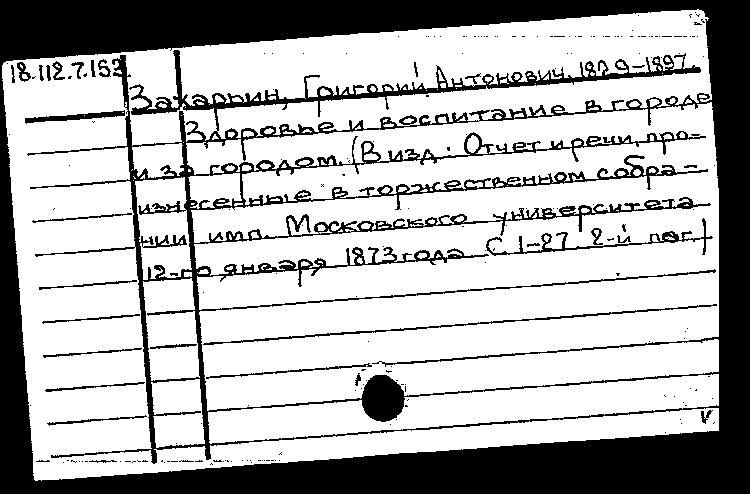 18.112.7.153.
Захарьин, Григорий Антонович, 1829-1897.
Здоровье и воспитание в городе
и за городом. (В изд.: Отчет и речи, про-
изнесенные в торжественном собра-
нии имп. Московского университета
12-го января 1873 года С. 1-27 2-й паг.)
V